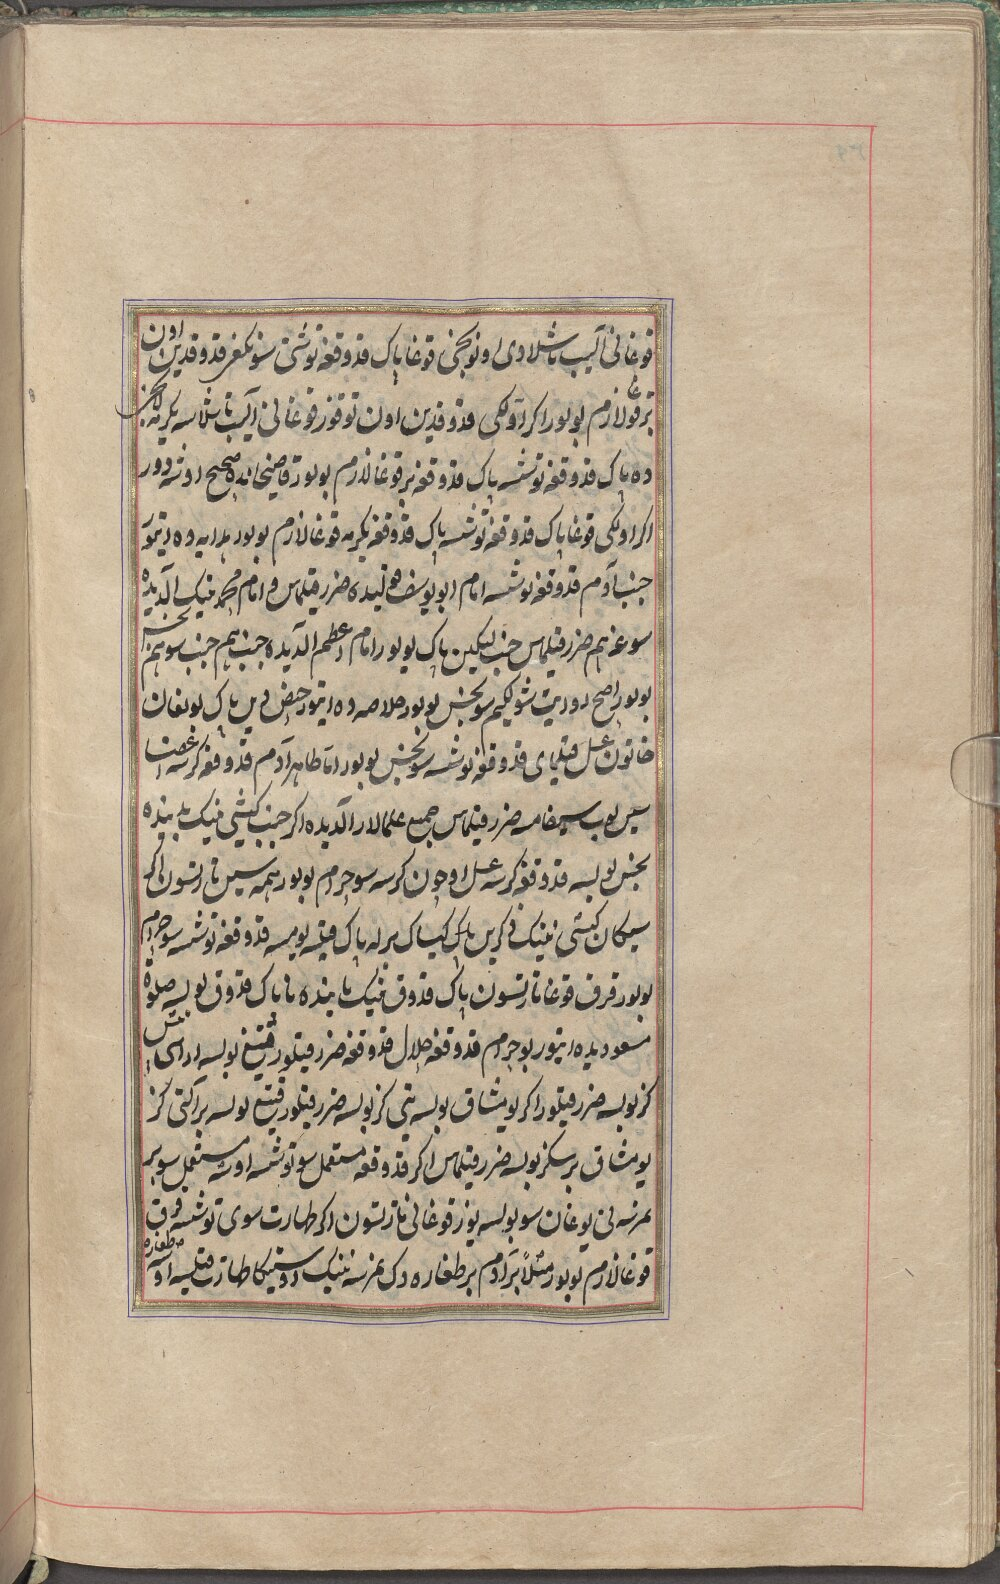 قوغانی آلیب تاشلادی اونونجی قوغا پاک قدوقغه توشتی سونکغی قدوقدین اون
بر قوغا لازم بولور اکر اولکی قدوقدین اون توقوز قوغانی آلیب تاشلاسه یکرمه
ده پاک قدوقغه توشسه پاک قدوقغه بر قوغا لازم بولور قاضیخانده صحیح اوشه دور
اکر اولکی قوغا پاک قدوقغه توشسه پاک قدوقغه یکرمه قوغا لازم بولور هدایه ده ایتور
جنب آدم قدوقغه توشسه امام ابو یوسف قولیده ضرر قیلماس و امام محمد نینک آلدیده
سوغه هم ضرر قیلماس جنب لیکین پاک بولور امام اعظم آلدیده جنب هم جنب سو هم نجس
بولور اصح روایت شولکیم سو نجس بولور خلاصه ده ایتور حیض دین پاک بولغان
خاتون غسل قیلمای قدوقغه توشسه سو نجس بولور اما طاهر آدم قدوقغه کرسه
سیس بوب ضرر قیلماس جمیع علمالار آلدیده اکر جنب کیشی نینک بدنیده
نجس بولسه قدوقغه کرسه غسل اوچون کرسه سو حرام بولور همه سین تارتسون اکر
کیشی نینک ذکرین پاک کیساک برله پاک قیلیب یومسه قدوقغه توشسه سو حرام
بولور قرق قوغا تارتسون پاک قدوق نینک یانیده ناپاک قدوق بولسه صلوة
مسعودیده ایتور بو حرام قدوقغه حلال قدوقغه ضرر قیلور قتیغ بولسه اراسی بیش
کز بولسه ضرر قیلور اکر یومشاق بولسه یتی کز بولسه ضرر قیلور قتیغ بولسه بر آلتی کز
یومشاق بر سکز بولسه ضرر قیلماس اکر قدوقغه مستعمل سو توشسه اوشه مستعمل سو بر
نرسه نی یوغان سو بولسه یوز قوغانی تارتسون اکر طهارت سوی توشسه قرق
قوغا لازم بولور مثلاً بر آدم بر طغاره دک نرسه نینک اوستیکا طهارت قیلسه اوشه طغاره